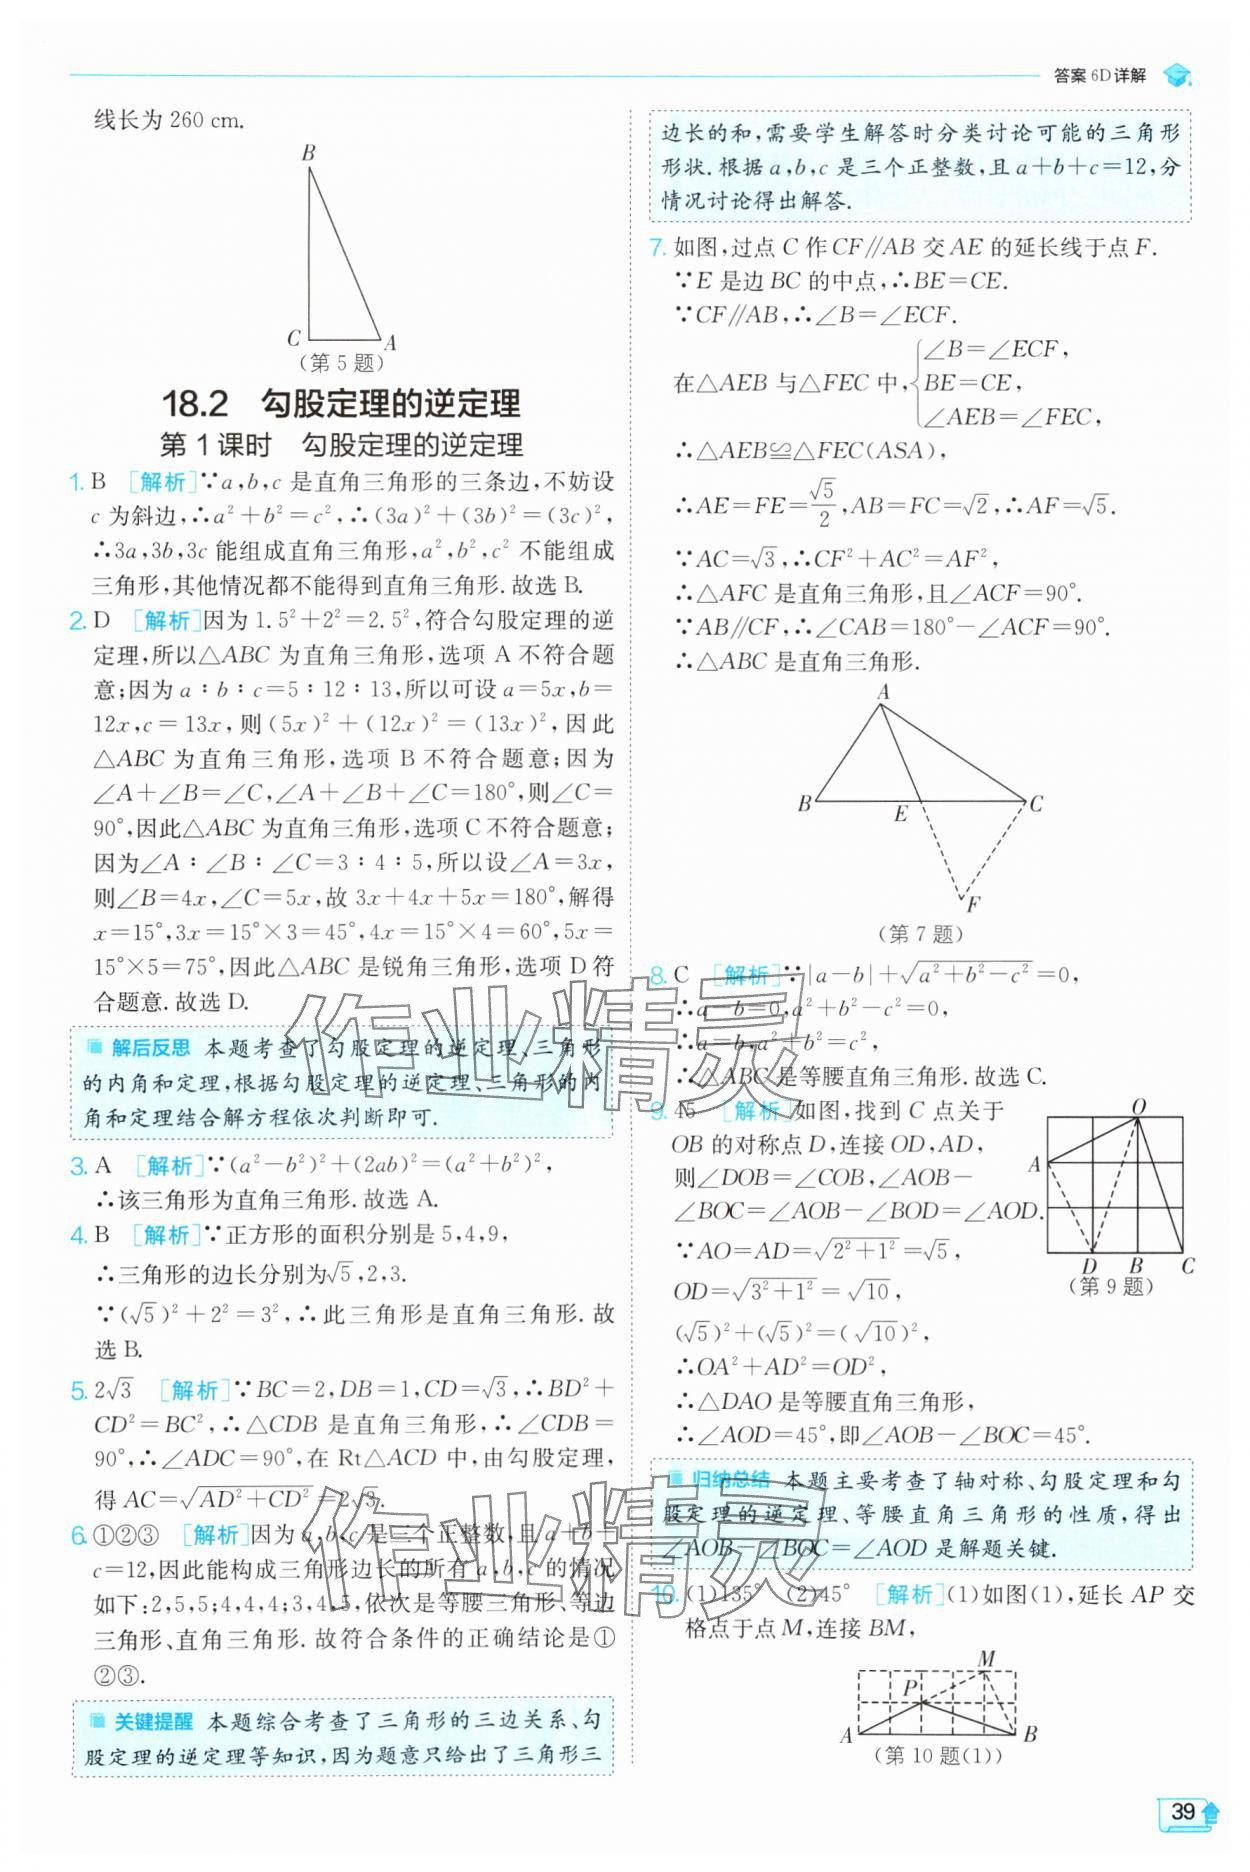 答案 6D 详解
线长为 260 cm.
B
C
A
(第 5 题)
18.2 勾股定理的逆定理
第 1 课时 勾股定理的逆定理
1. B [解析]∵a,b,c 是直角三角形的三条边,不妨设
c 为斜边,∴a²+b²=c²,∴(3a)²+(3b)²=(3c)²,
∴3a,3b,3c 能组成直角三角形,a²,b²,c² 不能组成
三角形,其他情况都不能得到直角三角形.故选 B.
2. D [解析]因为 1.5²+2²=2.5²,符合勾股定理的逆
定理,所以△ABC 为直角三角形,选项 A 不符合题
意;因为 a∶b∶c=5∶12∶13,所以可设 a=5x,b=
12x,c=13x,则(5x)²+(12x)²=(13x)²,因此
△ABC 为直角三角形,选项 B 不符合题意;因为
∠A+∠B=∠C,∠A+∠B+∠C=180°,则∠C=
90°,因此△ABC 为直角三角形,选项 C 不符合题意;
因为∠A∶∠B∶∠C=3∶4∶5,所以设∠A=3x,
则∠B=4x,∠C=5x,故 3x+4x+5x=180°,解得
x=15°,3x=15°×3=45°,4x=15°×4=60°,5x=
15°×5=75°,因此△ABC 是锐角三角形,选项 D 符
合题意.故选 D.
解后反思 本题考查了勾股定理的逆定理、三角形
的内角和定理,根据勾股定理的逆定理、三角形的内
角和定理结合解方程依次判断即可.
3. A [解析]∵(a²-b²)²+(2ab)²=(a²+b²)²,
∴该三角形为直角三角形.故选 A.
4. B [解析]∵正方形的面积分别是 5,4,9,
∴三角形的边长分别为√5,2,3.
∵(√5)²+2²=3²,∴此三角形是直角三角形.故
选 B.
5. 2√3 [解析]∵BC=2,DB=1,CD=√3,∴BD²+
CD²=BC²,∴△CDB 是直角三角形,∴∠CDB=
90°,∴∠ADC=90°,在 Rt△ACD 中,由勾股定理,
得 AC=√(AD²+CD²)=2√3.
6. ①②③ [解析]因为 a,b,c 是三个正整数,且 a+b+
c=12,因此能构成三角形边长的所有 a,b,c 的情况
如下:2,5,5;4,4,4;3,4,5,依次是等腰三角形、等边
三角形、直角三角形.故符合条件的正确结论是①
②③.
关键提醒 本题综合考查了三角形的三边关系、勾
股定理的逆定理等知识,因为题意只给出了三角形三
边长的和,需要学生解答时分类讨论可能的三角形
形状.根据 a,b,c 是三个正整数,且 a+b+c=12,分
情况讨论得出解答.
7. 如图,过点 C 作 CF∥AB 交 AE 的延长线于点 F.
∵E 是边 BC 的中点,∴BE=CE.
∵CF∥AB,∴∠B=∠ECF.
在△AEB 与△FEC 中,{∠B=∠ECF,
BE=CE,
∠AEB=∠FEC,
∴△AEB≌△FEC(ASA),
∴AE=FE=√5/2,AB=FC=√2,∴AF=√5.
∵AC=√3,∴CF²+AC²=AF²,
∴△AFC 是直角三角形,且∠ACF=90°.
∵AB∥CF,∴∠CAB=180°-∠ACF=90°.
∴△ABC 是直角三角形.
A
B
E
C
F
(第 7 题)
8. C [解析]∵|a-b|+√(a²+b²-c²)=0,
∴a-b=0,a²+b²-c²=0,
∴a=b,a²+b²=c²,
∴△ABC 是等腰直角三角形.故选 C.
9. 45 [解析]如图,找到 C 点关于
OB 的对称点 D,连接 OD,AD,
则∠DOB=∠COB,∠AOB-
∠BOC=∠AOB-∠BOD=∠AOD.
∵AO=AD=√(2²+1²)=√5,
OD=√(3²+1²)=√10,
(√5)²+(√5)²=(√10)²,
∴OA²+AD²=OD²,
∴△DAO 是等腰直角三角形,
∴∠AOD=45°,即∠AOB-∠BOC=45°.
O
A
D B C
(第 9 题)
归纳总结 本题主要考查了轴对称、勾股定理和勾
股定理的逆定理、等腰直角三角形的性质,得出
∠AOB-∠BOC=∠AOD 是解题关键.
10. (1)135° (2)45° [解析](1)如图(1),延长 AP 交
格点于点 M,连接 BM,
M
P
A
B
(第 10 题(1))
39
作业精灵
作业精灵